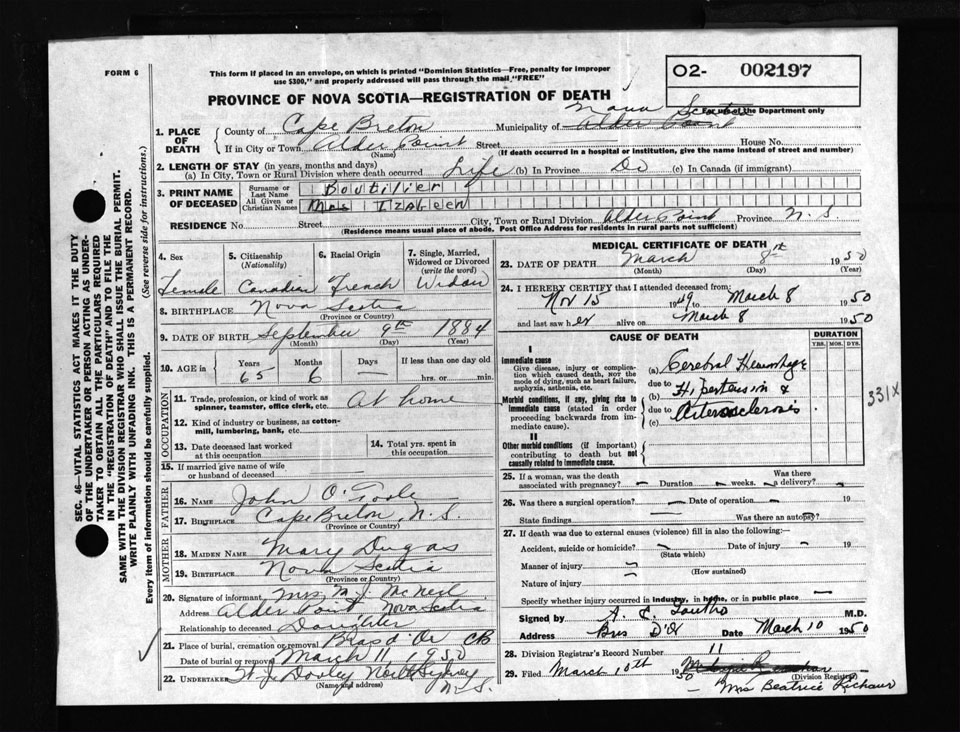 FORM 6
This form if placed in an envelope, on which is printed "Dominion Statistics—Free, penalty for improper
use $300," and properly addressed will pass through the mail "FREE"
O2- 002197
For use of the Department only
PROVINCE OF NOVA SCOTIA—REGISTRATION OF DEATH
Nova Scotia
1. PLACE OF DEATH
County of Cape Breton Municipality of Alder Point
If in City or Town Alder Point Street House No.
(Name) (If death occurred in a hospital or institution, give the name instead of street and number)
2. LENGTH OF STAY (in years, months and days)
(a) In City, Town or Rural Division where death occurred Life (b) In Province Do (c) In Canada (if immigrant)
3. PRINT NAME OF DECEASED
Surname or Last Name Boutilier
All Given or Christian Names Mrs
RESIDENCE No. Street City, Town or Rural Division Alder Point Province N.S.
(Residence means usual place of abode. Post Office Address for residents in rural parts not sufficient)
4. Sex
Female
5. Citizenship
(Nationality)
Canadian
6. Racial Origin
French
7. Single, Married,
Widowed or Divorced
(write the word)
Widow
8. BIRTHPLACE Nova Scotia
(Province or Country)
9. DATE OF BIRTH September 9th 1884
(Month) (Day) (Year)
10. AGE in
Years Months Days If less than one day old
65 6 — hrs. or min.
OCCUPATION
11. Trade, profession, or kind of work as
spinner, teamster, office clerk, etc. At home
12. Kind of industry or business, as cotton-
mill, lumbering, bank, etc.
13. Date deceased last worked
at this occupation
14. Total yrs. spent in
this occupation
15. If married give name of wife
or husband of deceased
FATHER
16. NAME John O'Toole
17. BIRTHPLACE Cape Breton, N.S.
(Province or Country)
MOTHER
18. MAIDEN NAME Mary Dugas
19. BIRTHPLACE Nova Scotia
(Province or Country)
20. Signature of informant Mrs. M. J. McNeil
Address Alder Point Nova Scotia
Relationship to deceased Daughter
21. Place of burial, cremation or removal Bras d'Or CB
Date of burial or removal March 11, 1950
22. UNDERTAKER Dooley North Sydney
(Name and address) N.S.
MEDICAL CERTIFICATE OF DEATH
23. DATE OF DEATH March 8th 1950
(Month) (Day) (Year)
24. I HEREBY CERTIFY that I attended deceased from:
Nov 15 1949 to March 8 1950
and last saw her alive on March 8 1950
CAUSE OF DEATH
DURATION
YRS. MOS. DYS.
I
Immediate cause
Give disease, injury or compli-
cation which caused death, NOT the
mode of dying, such as heart failure,
asphyxia, asthenia, etc.
Morbid conditions, if any, giving rise to
immediate cause (stated in order
proceeding backwards from im-
mediate cause).
II
Other morbid conditions (if important)
contributing to death but not
causally related to immediate cause.
(a) Cerebral Hemorrhage
due to
(b) Hypertension &
due to
(c) Arteriosclerosis
331X
25. If a woman, was the death Was there
associated with pregnancy? — Duration — weeks. a delivery? —
26. Was there a surgical operation? — Date of operation — 19
State findings Was there an autopsy? —
27. If death was due to external causes (violence) fill in also the following:—
Accident, suicide or homicide? — Date of injury — 19
(State which)
Manner of injury —
(How sustained)
Nature of injury —
Specify whether injury occurred in industry, in home, or in public place —
Signed by A. C. M.D.
Address Bras D'Or Date March 10 1950
28. Division Registrar's Record Number 11
29. Filed March 10th 1950
(Division Registrar)
Mrs Beatrice
SEC. 46—VITAL STATISTICS ACT MAKES IT THE DUTY
OF THE UNDERTAKER OR PERSON ACTING AS UNDER-
TAKER TO OBTAIN ALL THE PARTICULARS REQUIRED
IN THE "REGISTRATION OF DEATH" AND TO FILE THE
SAME WITH THE DIVISION REGISTRAR WHO SHALL ISSUE THE BURIAL PERMIT.
WRITE PLAINLY WITH UNFADING INK. THIS IS A PERMANENT RECORD.
Every item of information should be carefully supplied. (See reverse side for instructions.)